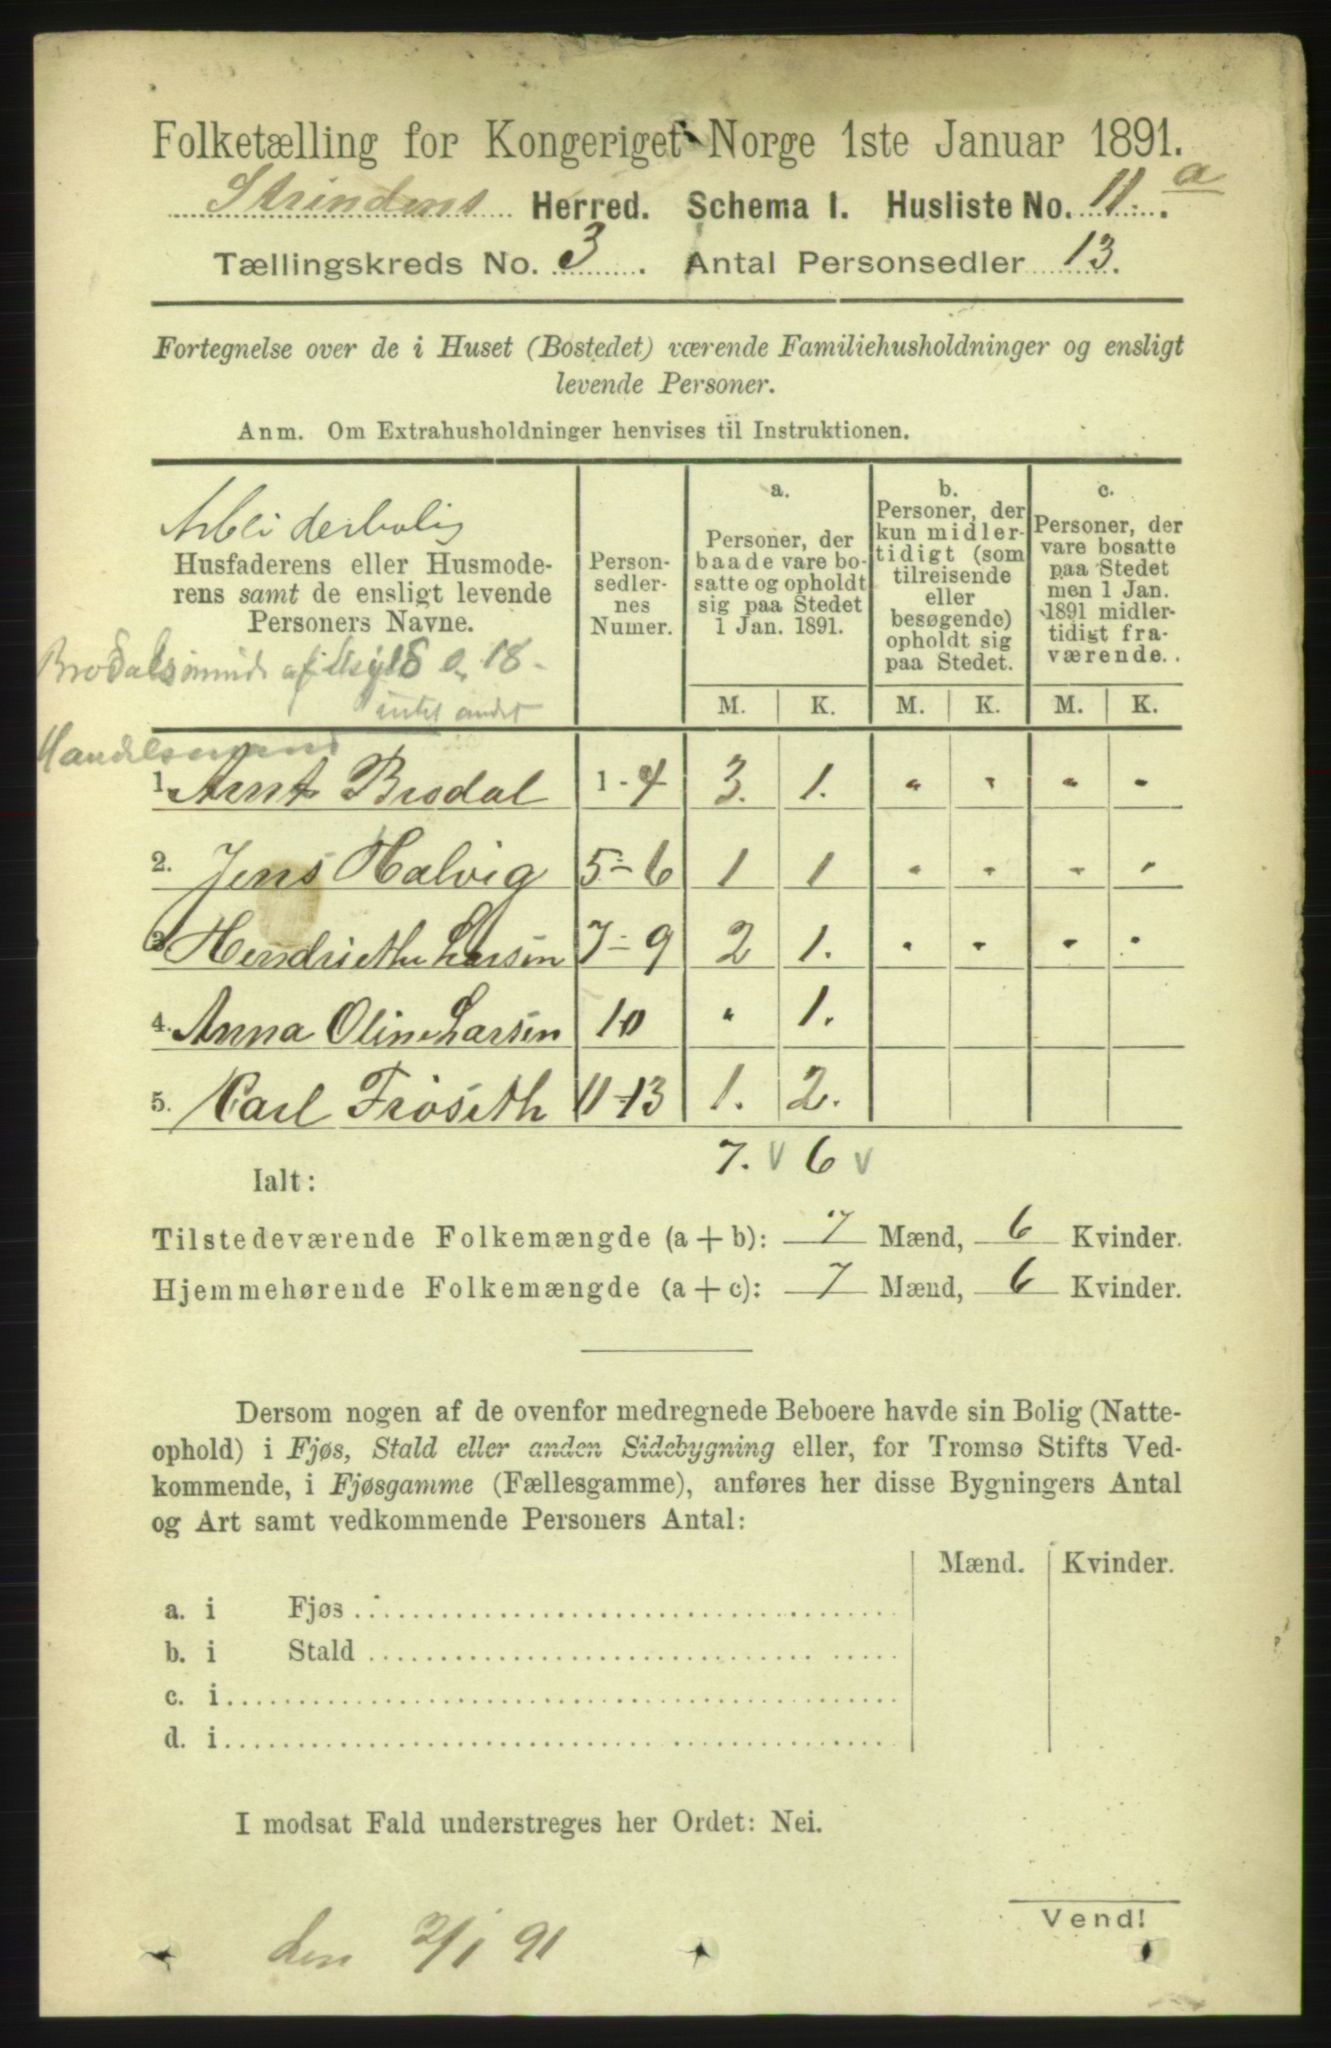 Folketælling for Kongeriget Norge 1ste Januar 1891.
Strindens Herred. Schema I. Husliste No. 11. a
Tællingskreds No. 3. Antal Personsedler 13.
Fortegnelse over de i Huset (Bostedet) værende Familiehusholdninger og ensligt
levende Personer.
Anm. Om Extrahusholdninger henvises til Instruktionen.
Arbeiderbolig
Husfaderens eller Husmode-
rens samt de ensligt levende
Personers Navne.
Brodals af Skyld 18.
intet andet
Person-
sedler-
nes
Numer.
a.
Personer, der
baade vare bo-
satte og opholdt
sig paa Stedet
1 Jan. 1891.
b.
Personer, der
kun midler-
tidigt (som
tilreisende
eller
besøgende)
opholdt sig
paa Stedet.
c.
Personer, der
vare bosatte
paa Stedet
men 1 Jan.
1891 midler-
tidigt fra-
værende.
M. K. M. K. M. K.
Handelsmand
1. Arnt Brodal 1-4 3. 1. " " " "
2. Jens Halvig 5-6 1 1 " " " "
3. Hendriethe Larsen 7-9 2 1. " " " "
4. Anna Oline Larsen 10 " 1.
5. Carl Frøseth 11-13 1. 2.
7. v 6 v
Ialt:
Tilstedeværende Folkemængde (a + b): 7 Mænd, 6 Kvinder.
Hjemmehørende Folkemængde (a + c): 7 Mænd, 6 Kvinder.
Dersom nogen af de ovenfor medregnede Beboere havde sin Bolig (Natte-
ophold) i Fjøs, Stald eller anden Sidebygning eller, for Tromsø Stifts Ved-
kommende, i Fjøsgamme (Fællesgamme), anføres her disse Bygningers Antal
og Art samt vedkommende Personers Antal:
Mænd. Kvinder.
a. i Fjøs
b. i Stald
c. i
d. i
I modsat Fald understreges her Ordet: Nei.
Vend!
den 2/1 91